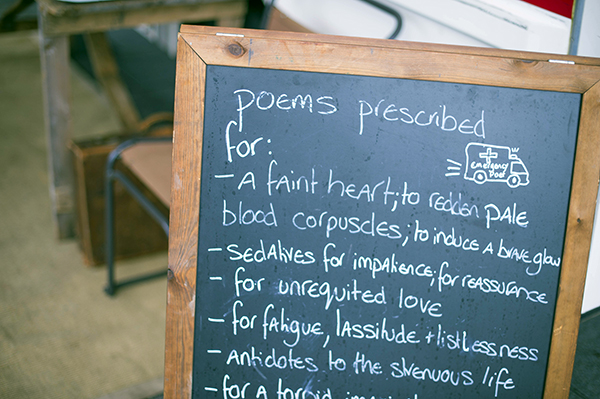 poems prescribed
for:
emergency
poet
- A faint heart; to redden pale
blood corpuscles; to induce a brave glow
- sedatives for impatience; for reassurance
- for unrequited love
- for fatigue, lassitude + listlessness
- Antidotes to the strenuous life
- for a torpid